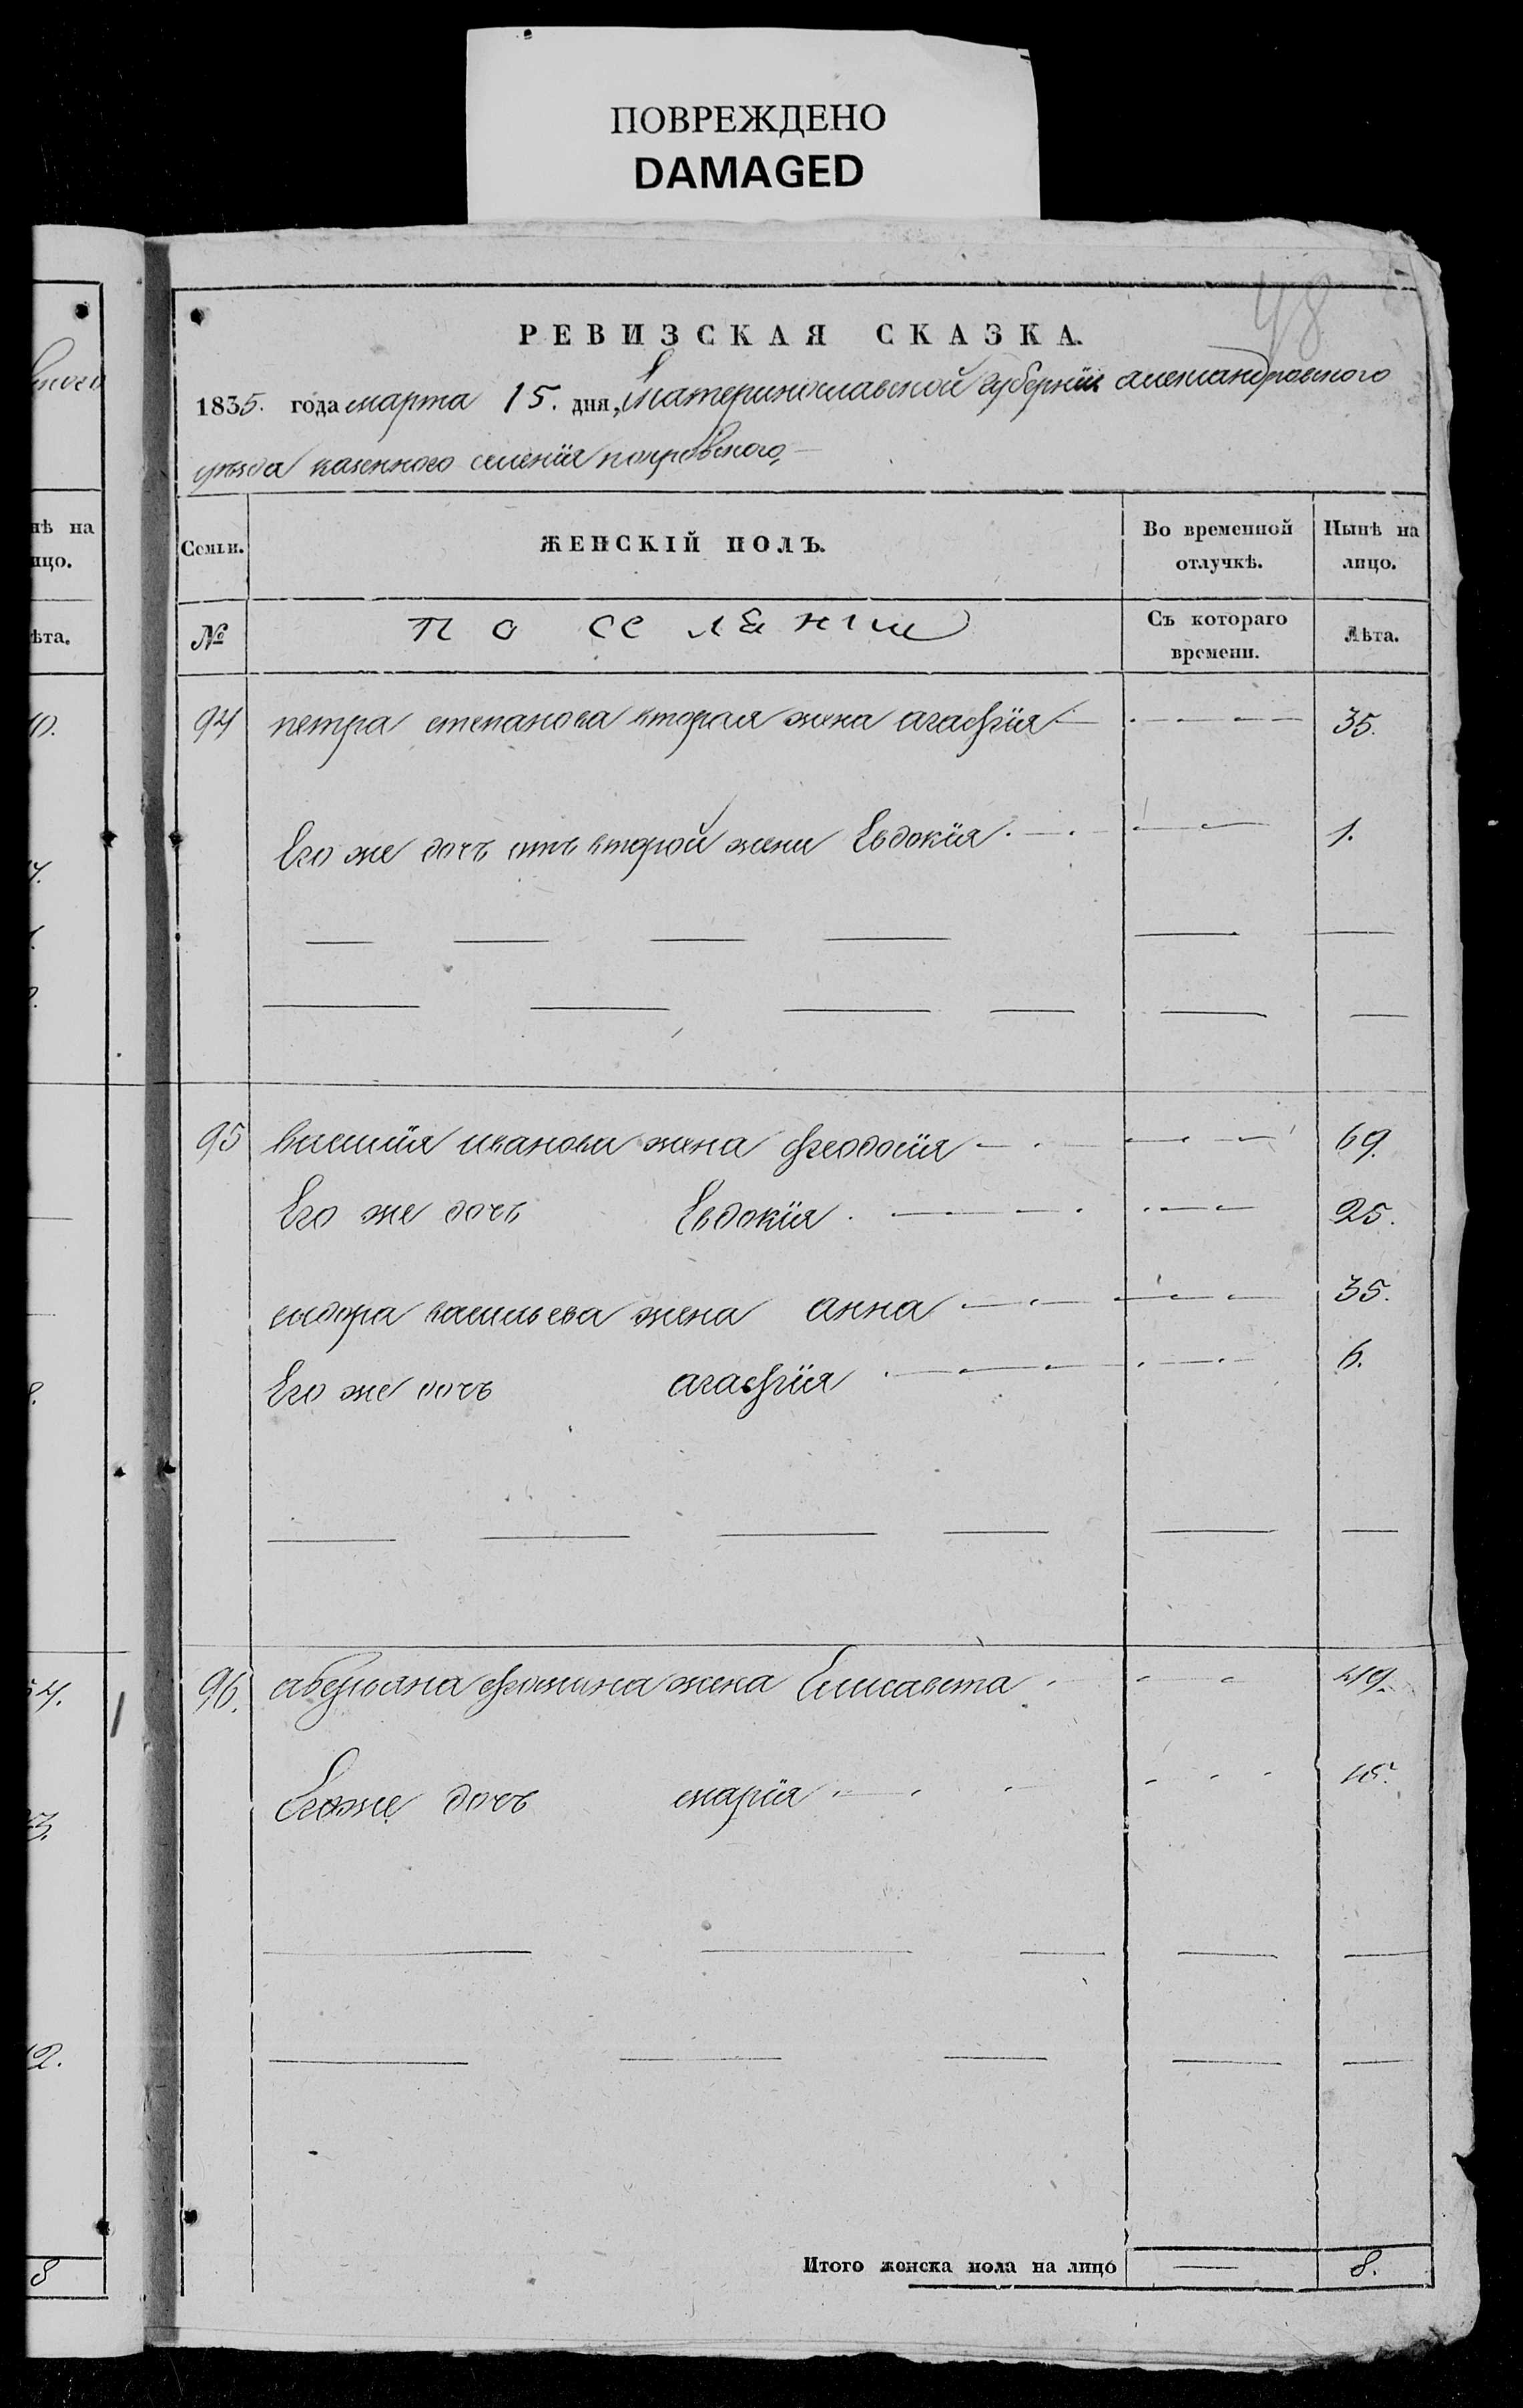 ПОВРЕЖДЕНО
DAMAGED
48
РЕВИЗСКАЯ СКАЗКА.
1835. года марта 15. дня, Екатеринославской губерніи александровского
уезда казенного селенія покровского
Семьи. ЖЕНСКІЙ ПОЛЪ. Во временной отлучкѣ. Нынѣ на лицо.
№ поселяни Съ котораго времени. Лѣта.
94 петра степанова вторая жена агафія 35.
Его же дочь отъ второй жени Евдокія 1.
95 василія иванова жена феодосія 69.
Его же дочь Евдокія 25.
сидора васильева жена анна 35.
Его же дочь агафія 6.
96. аверьяна фомина жена Елисавета 49.
Егоже дочь марія
Итого женска пола на лицо 8.
нѣ на
ицо.
ѣта.
0.
4.
3.
2.
8